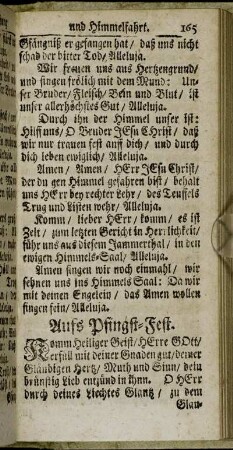 und Himmelfahrt. 165
Gfängniß er gefangen hat / daß uns nicht
schad der bitter Tod / Alleluja.
Wir freuen uns aus Hertzengrund /
und singen frölich mit dem Mund: Un-
ser Bruder / Fleisch / Bein und Blut / ist
unser allerhöchstes Gut / Alleluja.
Durch ihn der Himmel unser ist:
Hilff uns / O Bruder JEsu CHrist / daß
wir nur trauen fest auff dich / und durch
dich leben ewiglich / Alleluja.
Amen / Amen / HErr JEsu Christ /
der du gen Himmel gefahren bist / behalt
uns HErr bey rechter Lehr / des Teuffels
Trug und Listen wehr / Alleluja.
Komm / lieber HErr / komm / es ist
Zeit / zum letzten Gericht in Herrlichkeit /
führ uns aus diesem Jammerthal / in den
ewigen Himmels-Saal / Alleluja.
Amen singen wir noch einmahl / wir
sehnen uns ins Himmels Saal: Da wir
mit deinen Engelein / das Amen wollen
singen fein / Alleluja.
Aufs Pfingst-Fest.
Komm Heiliger Geist / HErre GOtt /
erfüll mit deiner Gnaden gut / deiner
Gläubigen Hertz / Muth und Sinn / dein
brünstig Lieb entzünd in ihnn. O HErr
durch deines Liechtes Glantz / zu dem
Glau-